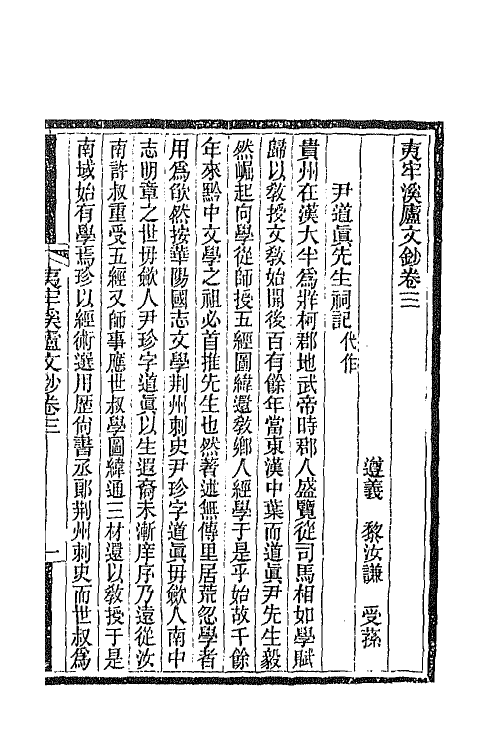 夷牢溪廬文鈔卷三
遵義　黎汝謙　受蓀
尹道眞先生祠記代作
貴州在漢大半爲牂柯郡地武帝時郡人盛覽從司馬相如學賦
歸以敎授文敎始開後百有餘年當東漢中葉而道眞尹先生毅
然崛起向學從師授五經圖緯還敎鄉人經學于是乎始故千餘
年來黔中文學之祖必首推先生也然著述無傳里居荒忽學者
用爲欿然按華陽國志文學荆州刺史尹珍字道眞毋歛人南中
志明章之世毋歛人尹珍字道眞以生遐裔未漸庠序乃遠從汝
南許叔重受五經又師事應世叔學圖緯通三材還以敎授于是
南域始有學焉珍以經術選用歷尙書丞郞荆州刺史而世叔爲
夷牢溪廬文鈔卷三
一